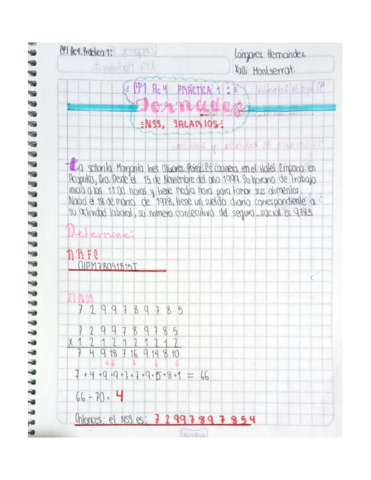 CP1 Ac4. Práctica 1:
Langarez Hernandez
Valli Montserrat.
CP1 Ac4 PRÁCTICA 1:
Jornadas
:NSS, SALARIOS:
La señorita Margarita Inés Olivares Pérez es cajera en el Hotel Emporio en
Acapulco, Gro. Desde el 15 de Noviembre del año 1999. Su horario de trabajo
inicia a las 11:00 horas y tiene media hora para tomar sus alimentos.
Nació el 18 de marzo de 1978, tiene un sueldo diario correspondiente a
su actividad laboral, su número consecutivo del seguro social es 9785.
Determine:
1) RFC
OIPM780318
2) NSS
7 2 9 9 7 8 9 7 8 5
7 2 9 9 7 8 9 7 8 5
x 1 2 1 2 1 2 1 2 1 2
7 4 9 18 7 16 9 14 8 10
7+4+9+9+7+7+9+5+8+1 = 66
66-70= 4
Entonces: el NSS es: 7 2 9 9 7 8 9 7 8 5 4